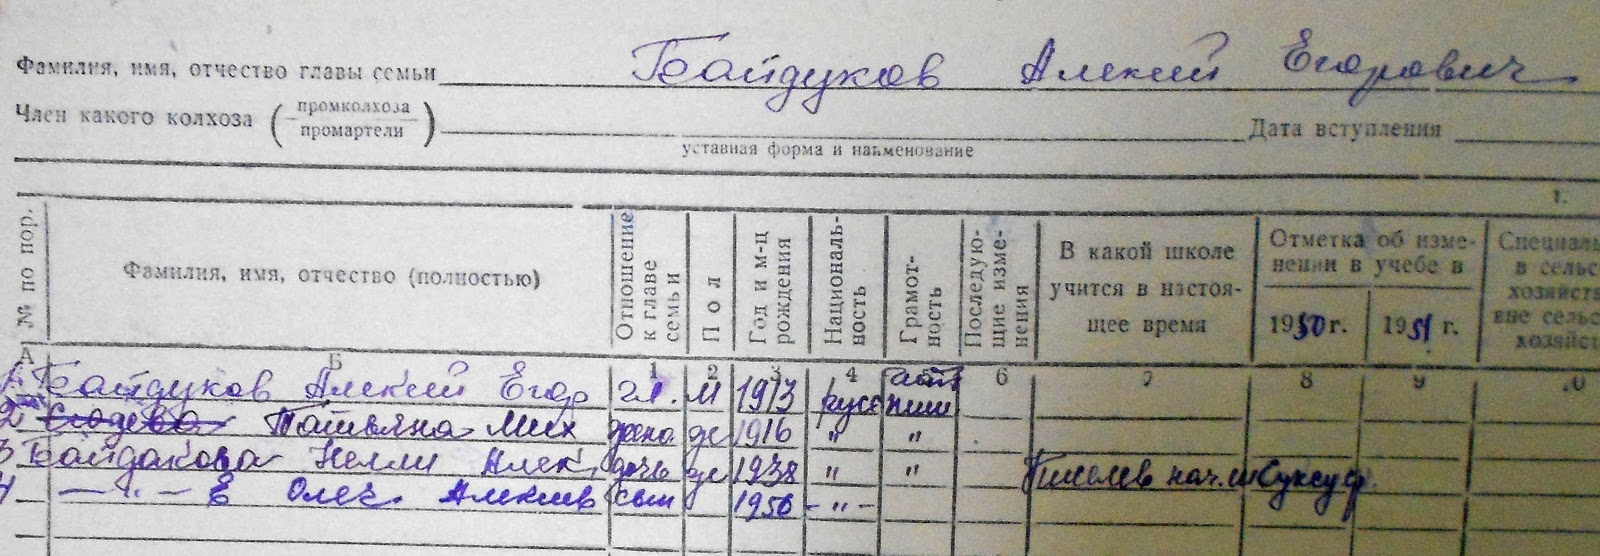 Фамилия, имя, отчество главы семьи Байдуков Алексий Егорович
Член какого колхоза (промколхоза
промартели)
Дата вступления
уставная форма и наименование
1.
№ по пор.
Фамилия, имя, отчество (полностью)
Отношение к главе семьи
Пол
Год и м-ц рождения
Националь-
ность
Грамот-
ность
Последую-
щие изме-
нения
В какой школе
учится в настоя-
щее время
Отметка об изме-
нении в учебе в
1950 г.
1951 г.
Специал
в сельс
хозяйст
вне сельс
хозяйст
А Б 1 2 3 4 5 6 7 8 9 10
1. Байдуков Алексий Егор гл. М 1913 русс
2 Татьяна Мих жена ж 1916 " "
3 Байдакова Нелли Алек, дочь ж 1938 " " нач. ш
4 — " — Олег Алексиев сын 1950 - " -